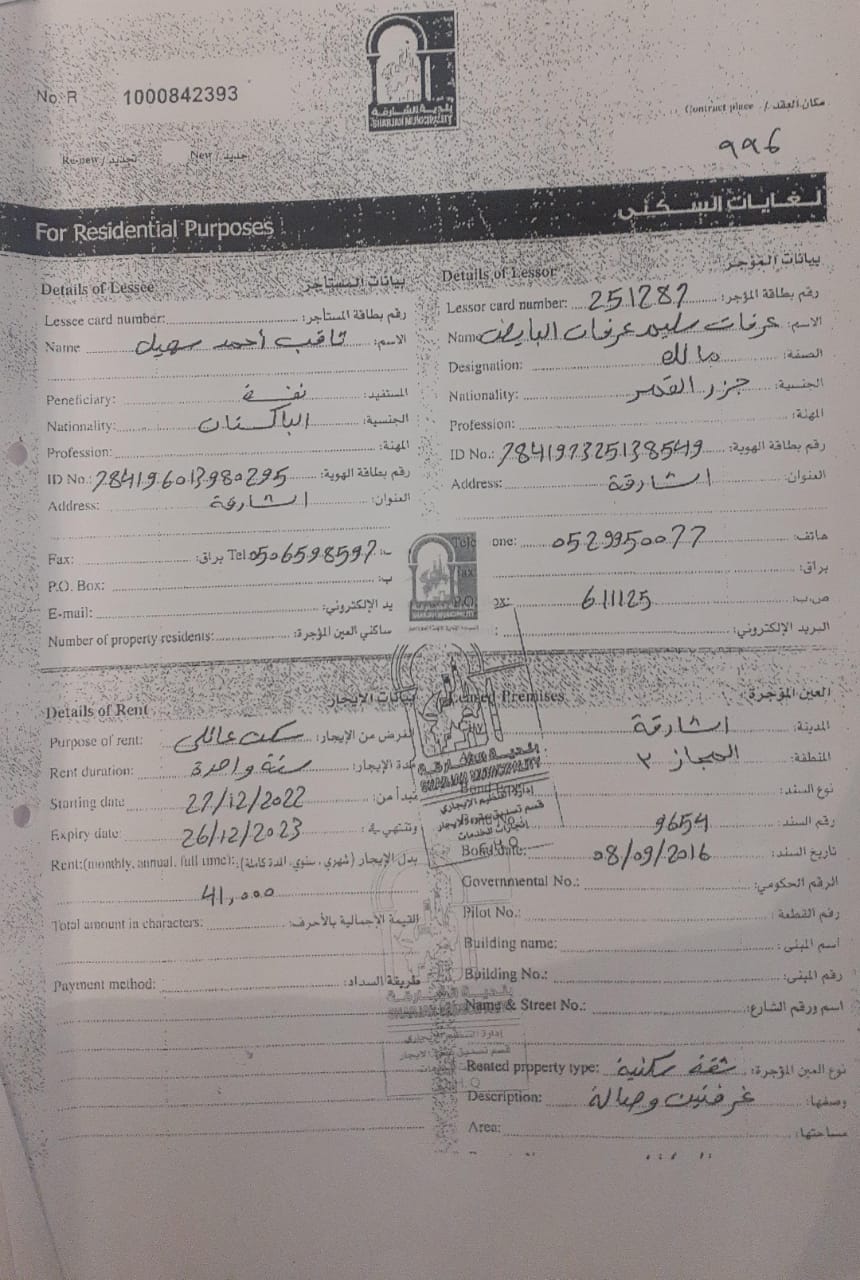 بلدية الشارقة
SHARJAH MUNICIPALITY
No. R 1000842393
Contract place / مكان العقد
٩٩٦
Re-new / تجديد New / جديد
For Residential Purposes لغايات السكنى
Details of Lessee بيانات المستأجر
Lessee card number: رقم بطاقة المستأجر:
Name ثاقب أحمد سهيل الاسم:
Peneficiary: نفسه المستفيد:
Nationality: الباكستان الجنسية:
Profession: المهنة:
ID No.: 784196013980295 رقم بطاقة الهوية:
Address: الشارقة العنوان:
Fax: براق: Tel 0506598597
P.O. Box:
E-mail: يد الإلكتروني:
Number of property residents: ساكني العين المؤجرة:
Details of Lessor بيانات المؤجر
Lessor card number: 251287 رقم بطاقة المؤجر:
Name عرفات سليم عرفات الاسم:
Designation: مالك الصفة:
Nationality: جزر القمر الجنسية:
Profession: المهنة:
ID No.: 784197325138549 رقم بطاقة الهوية:
Address: الشارقة العنوان:
Tele one: 0529950077 هاتف:
Fax براق:
P.O. ox: 611125 ص.ب:
البريد الإلكتروني:
Details of Rent بيانات الإيجار
Purpose of rent: سكن عائلي الغرض من الإيجار:
Rent duration: سنة واحدة مدة الإيجار:
Starting date 27/12/2022 يبدأ من:
Expiry date: 26/12/2023 وتنتهي في:
Rent:(monthly, annual, full time): بدل الإيجار (شهري، سنوي، المدة كاملة):
41,000
Total amount in characters: القيمة الإجمالية بالأحرف:
Payment method: طريقة السداد:
Premises العين المؤجرة
الشارقة المدينة:
المجاز ٣ المنطقة:
نوع السند:
9654 رقم السند:
Bond date: 08/09/2016 تاريخ السند:
Governmental No.: الرقم الحكومي:
Pilot No.: رقم القطعة:
Building name: اسم المبنى:
Building No.: رقم المبنى:
Name & Street No.: اسم ورقم الشارع:
Rented property type: شقة سكنية نوع العين المؤجرة:
Description: غرفتين وصالة وصفها:
Area: مساحتها:
بلدية الشارقة
SHARJAH MUNICIPALITY
إدارة التنظيم الإيجاري